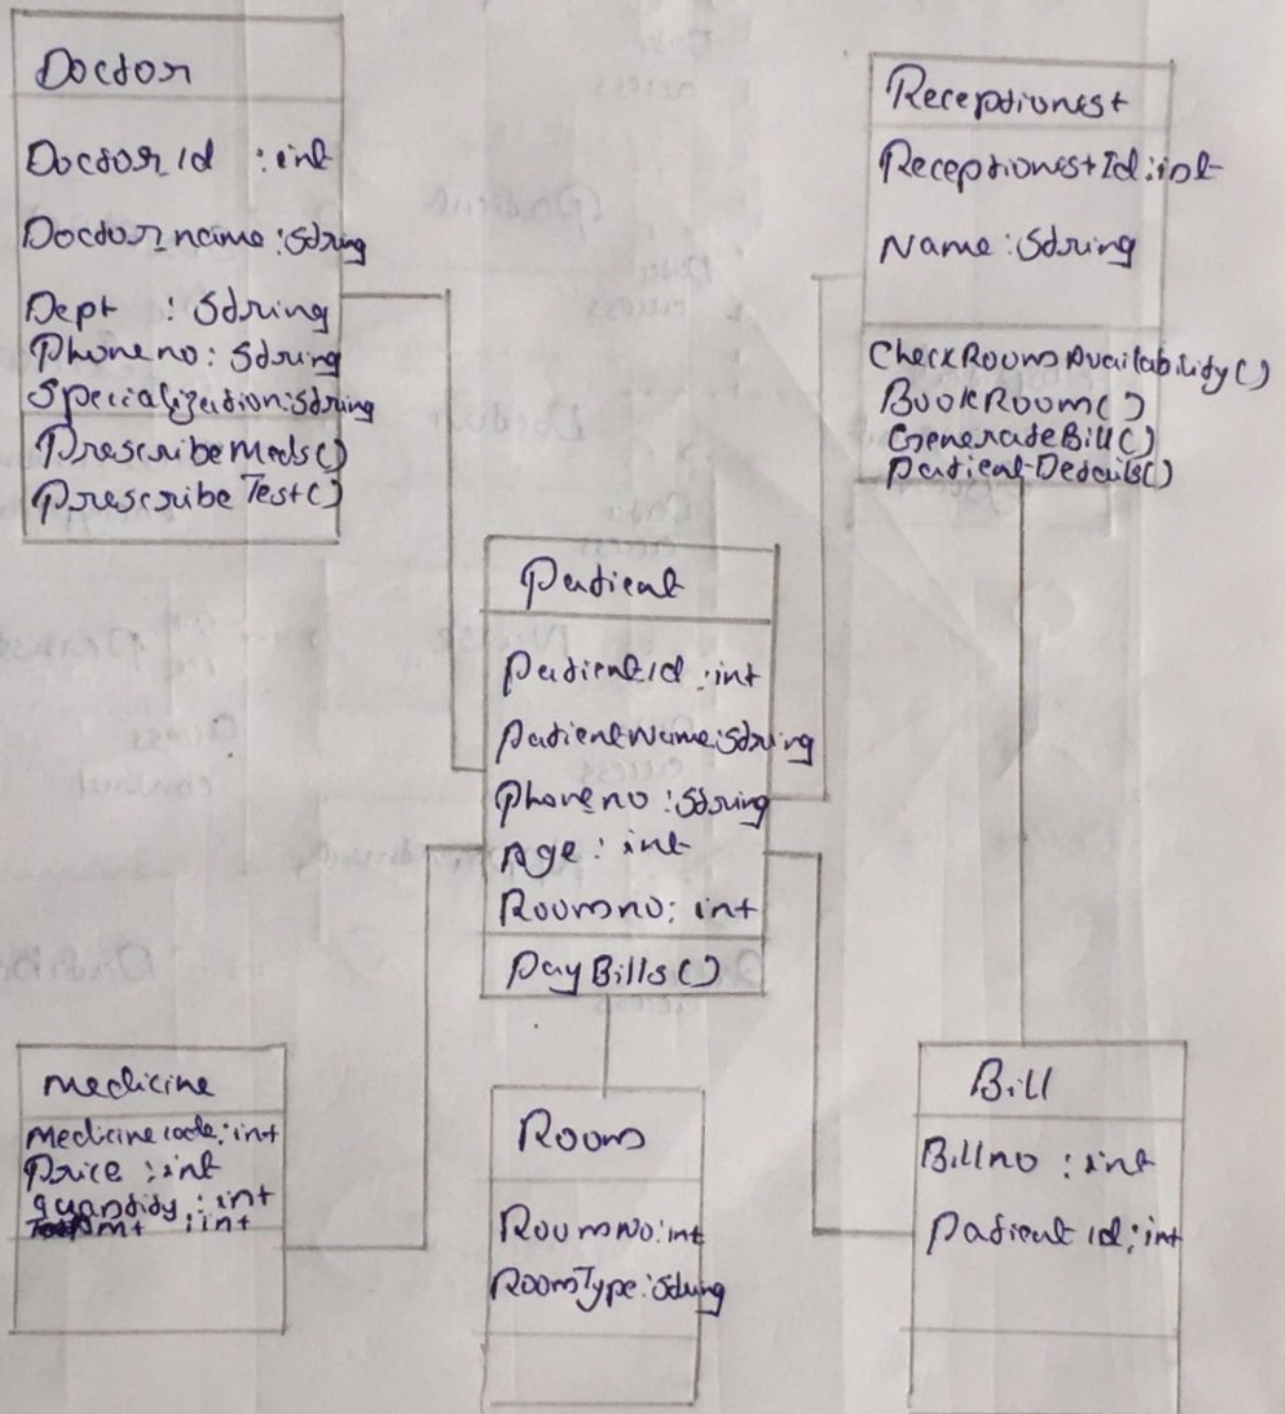 Doctor
Doctor Id : int
Doctor name : String
Dept : String
Phone no : String
Specialization : String
PrescribeMeds()
Prescribe Test()
Receptionest
Receptionest Id : int
Name : String
CheckRoomAvailability()
BookRoom()
GenerateBill()
Patient Details()
Patient
Patient Id : int
Patient Name : String
Phone no : String
Age : int
Room no : int
Pay Bills()
medicine
Medicine code : int
Price : int
quantity : int
Amt : int
Room
Room No : int
RoomType : String
Bill
Bill no : int
Patient id : int